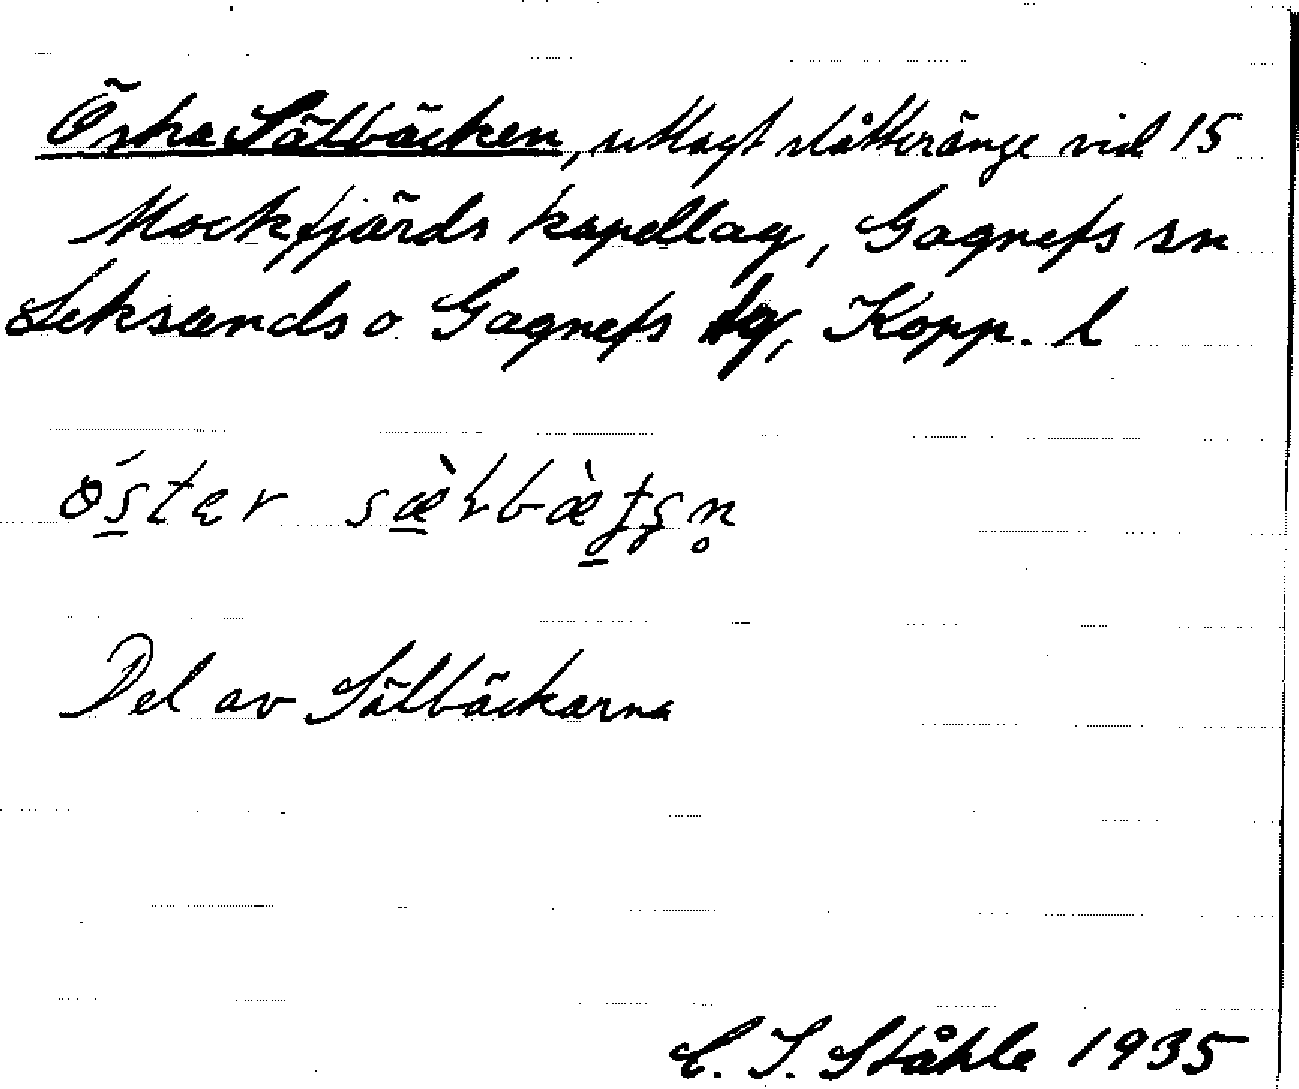 Östra Sälbäcken, utlagt slåtteränge vid 15
Mockfjärds kapellag, Gagnefs sn
Leksands o Gagnefs tg, Kopp. l
Del av Sälbäckarna
C. I. Ståhle 1935